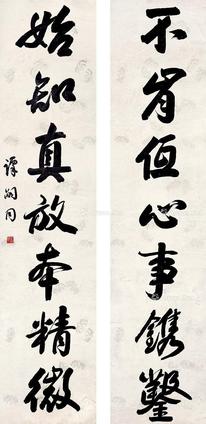 不肯低心事鐫鑿
始知真放本精微
譚嗣同